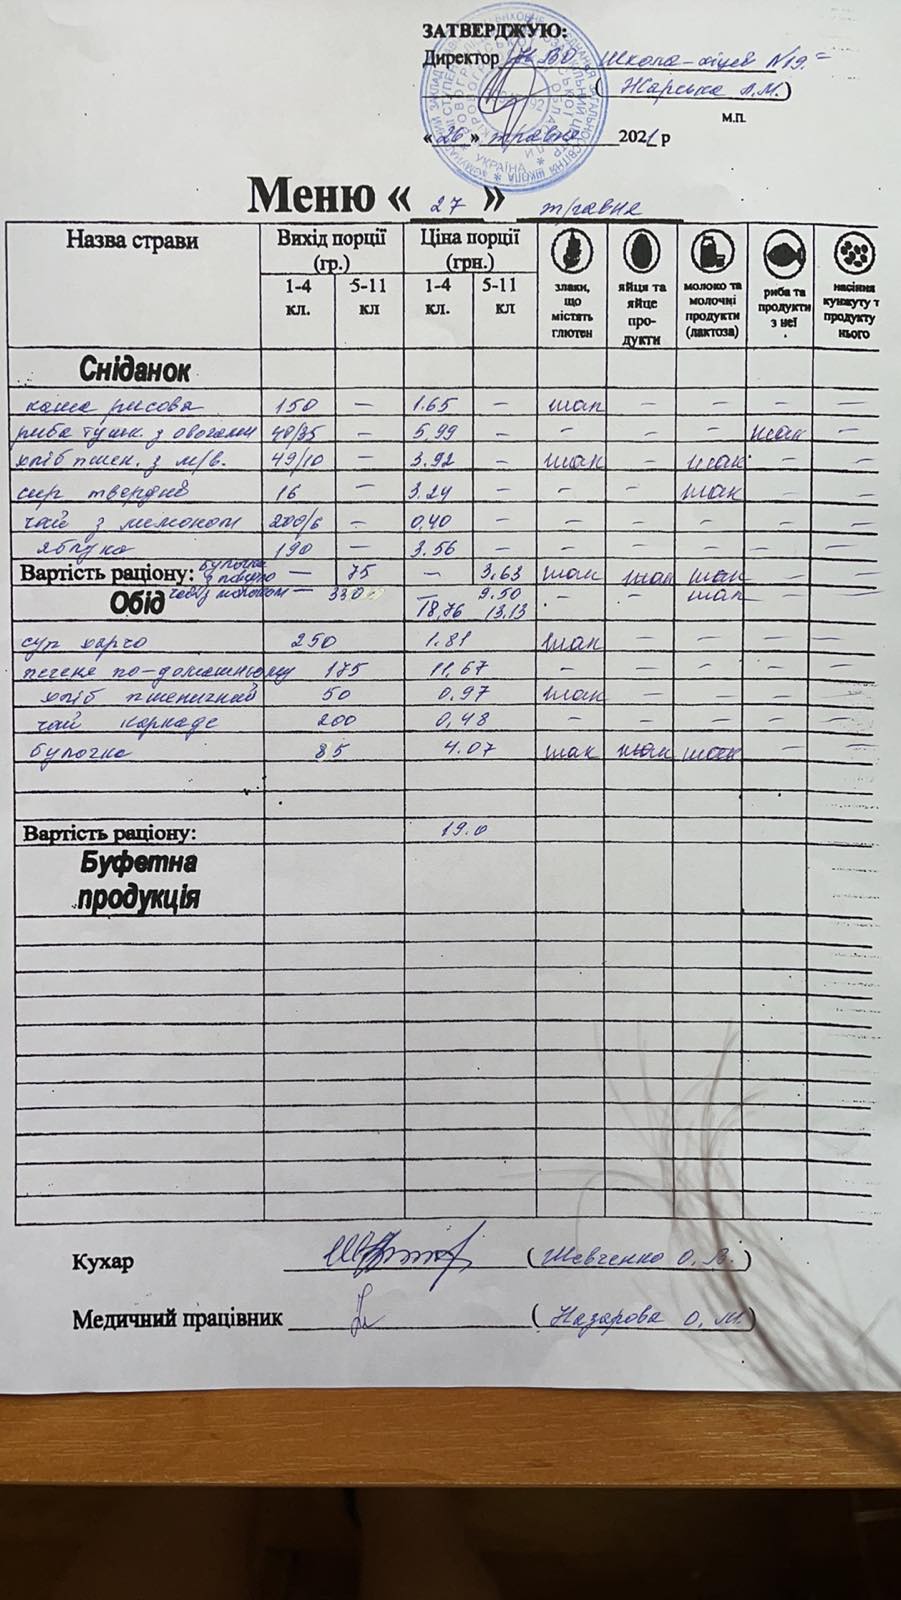 ЗАТВЕРДЖУЮ:
Директор НВО Школа-ліцей №19
( Жарська Л.М.)
М.П.
«26» травня 2021 р
Меню « 27 » травня
Назва страви Вихід порції (гр.) Ціна порції (грн.)
1-4 кл. 5-11 кл 1-4 кл. 5-11 кл
злаки, що містять глютен
яйця та яйце про-дукти
молоко та молочні продукти (лактоза)
риба та продукти з неї
насіння кунжуту т продукту нього
Сніданок
каша рисова 150 – 1.65 – так – – – –
риба тушк. з овочами 40/35 – 5,99 – – – – так –
хліб пшен. з м/в. 49/10 – 3.92 – так – так – –
сир твердий 16 – 3.24 – – – так – –
чай з лимоном 200/6 – 0,40 – – – – – –
яблуко 190 – 3.56 – – – – – –
Вартість раціону: булочка – 75 – 3,63 так так так – –
чай з молоком – 330 – 9.50 – – так – –
Обід 18,76 13,13
суп харчо 250 1.81 так – – – –
печеня по-домашньому 175 11,67 – – – – –
хліб пшеничний 50 0,97 так – – – –
чай каркаде 200 0,48 – – – – –
булочка 85 4.07 так так так – –
Вартість раціону: 19.0
Буфетна
продукція
Кухар ( Шевченко О. В.)
Медичний працівник ( Назарова О. М.)